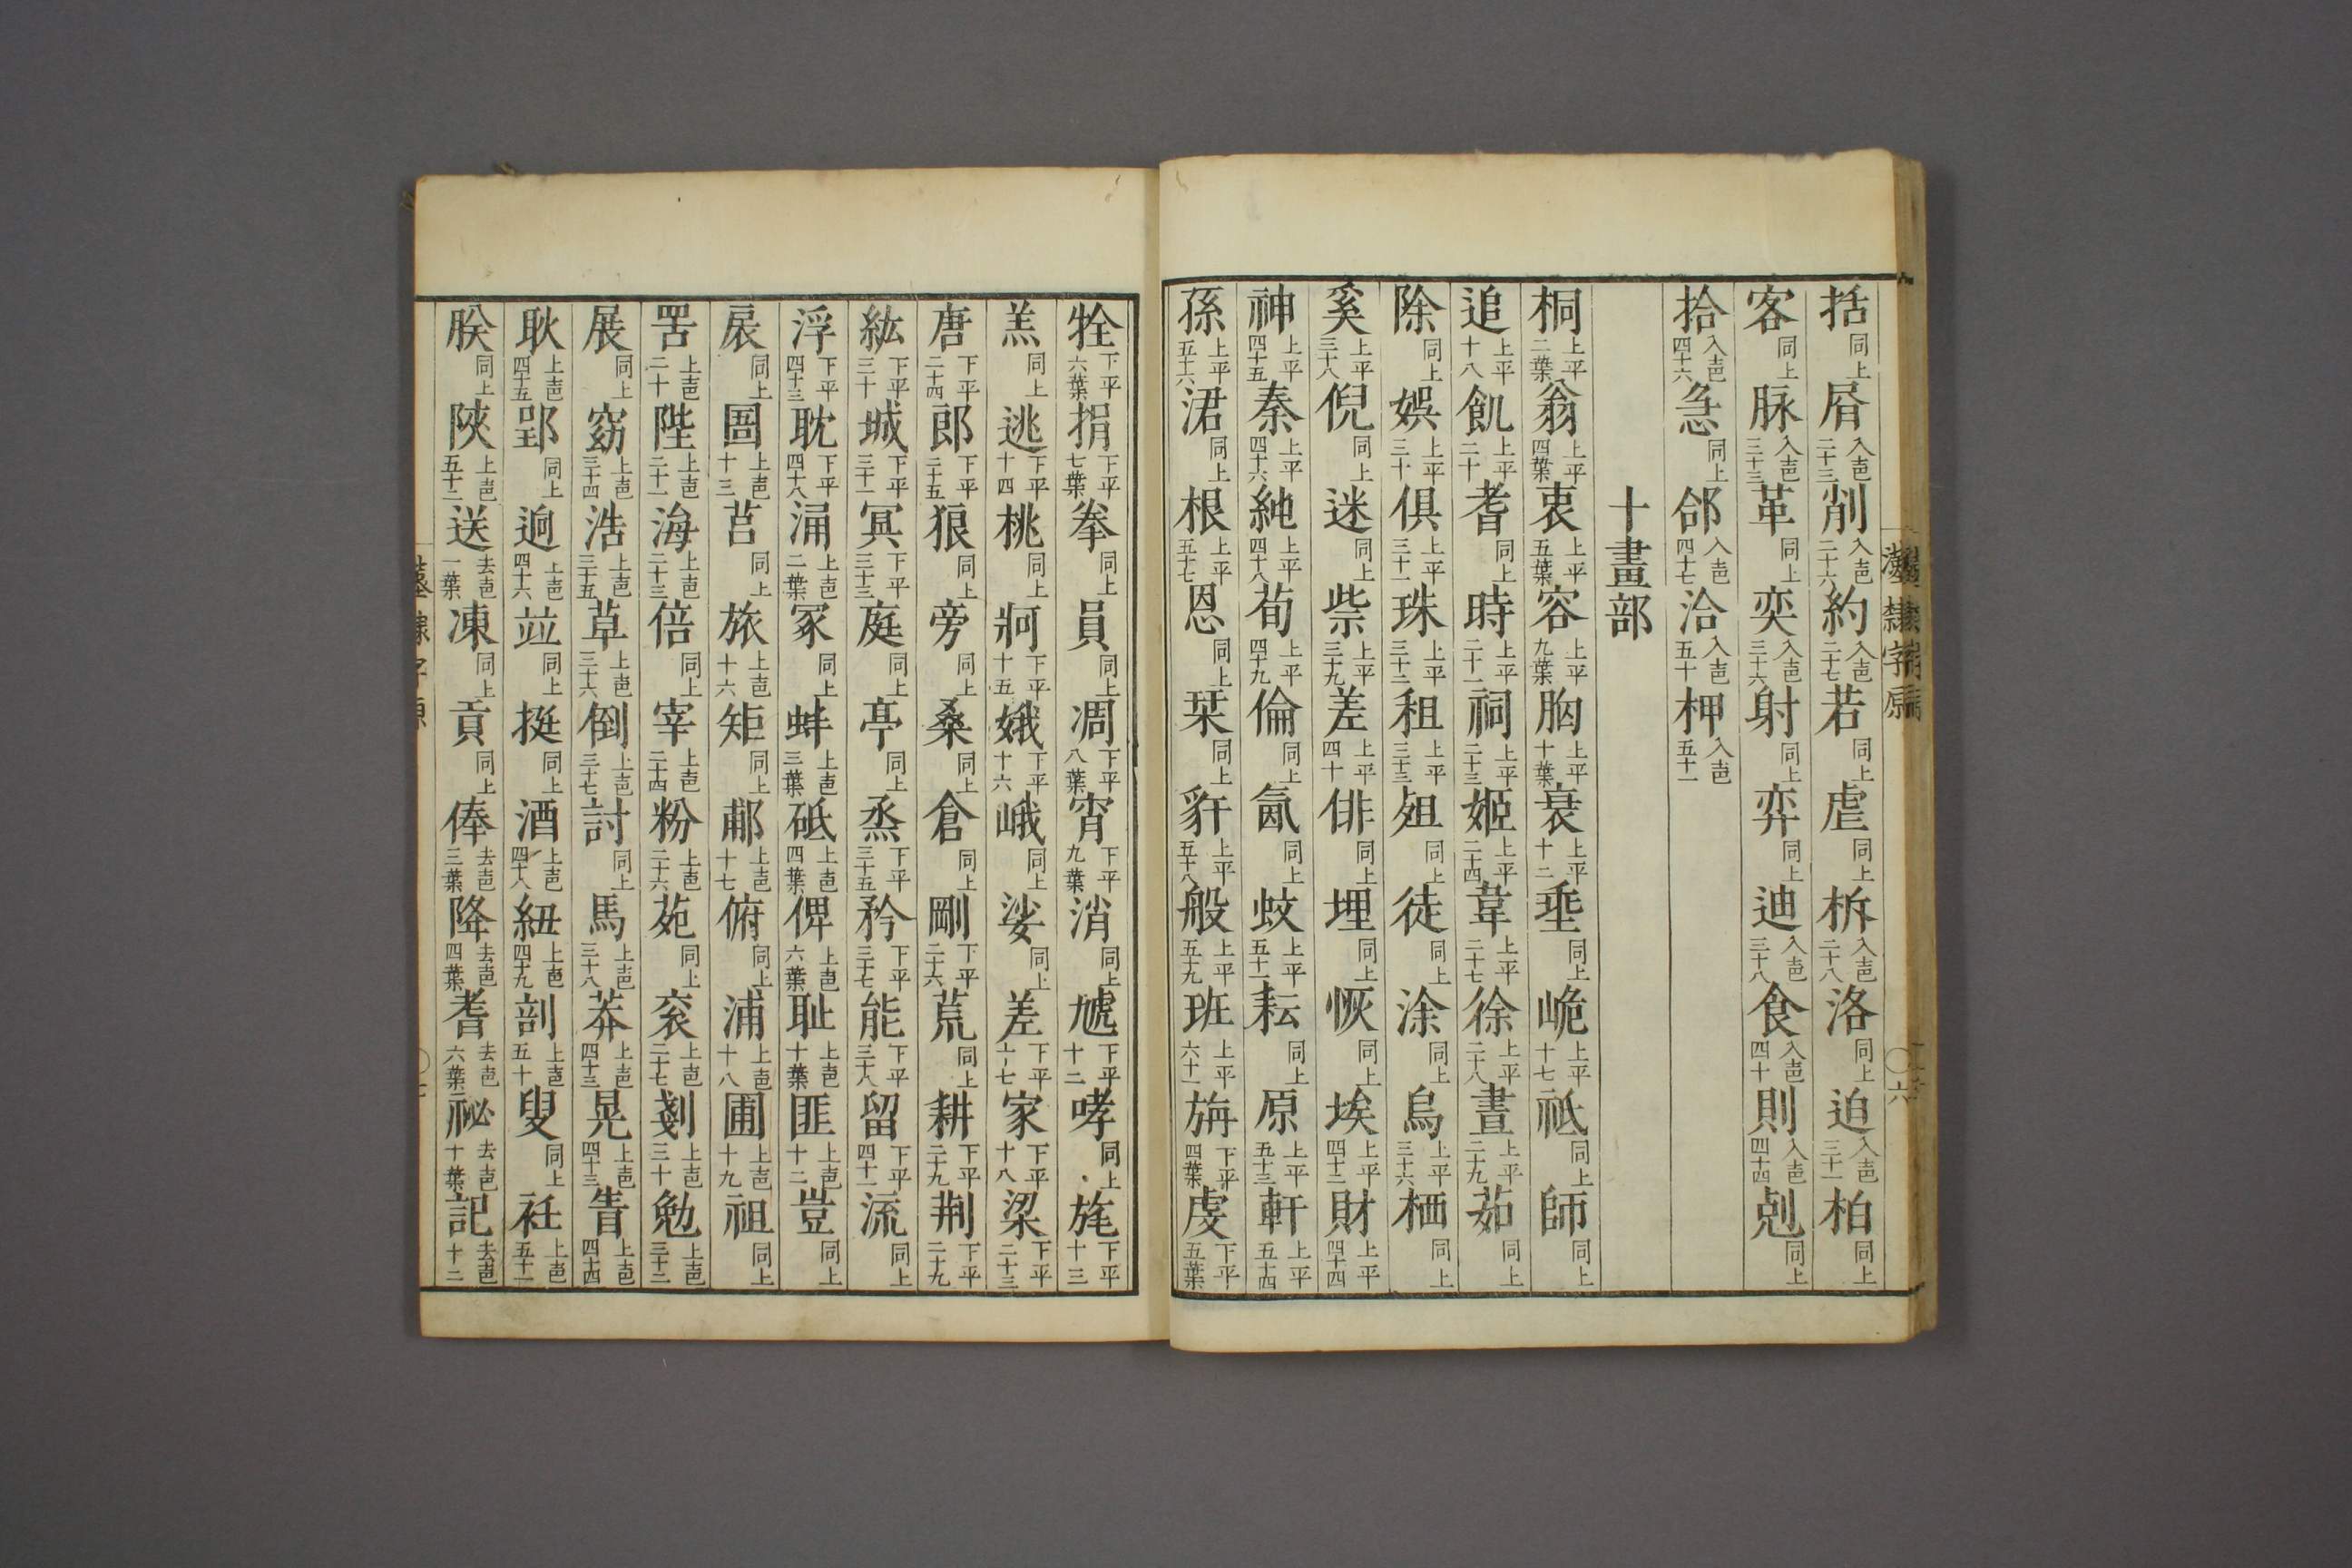 括同上屑入声二十三削入声二十六約入声二十七若同上虐同上柝入声二十八洛同上迫入声三十一柏同上
客同上脉入声三十三革同上奕入声三十六射同上弈同上迪入声三十八食入声四十則入声四十四剋同上
拾入声四十六急同上郃入声四十七洽入声五十柙入声五十一
十畫部
桐上平二葉翁上平四葉衷上平五葉容上平九葉胸上平十葉衰上平十二垂同上峗上平十七祇同上師同上
追上平十八飢上平二十耆同上時上平二十一祠上平二十三姬上平二十四韋上平二十七徐上平二十八晝上平二十九茹同上
除同上娛上平三十俱上平三十一珠上平三十二租上平三十三殂同上徒同上涂同上烏上平三十六栖同上
奚上平三十八倪同上迷同上祡上平三十九差上平四十俳同上埋同上恢同上埃上平四十二財上平四十四
神上平四十五秦上平四十六純上平四十八荀上平四十九倫同上氤同上蚊上平五十一耘同上原上平五十三軒上平五十四
孫上平五十六涒同上根上平五十七恩同上栞同上豻上平五十八般上平五十九班上平六十一旃下平四葉虔下平五葉
牷下平六葉捐下平七葉拳同上員同上凋下平八葉宵下平九葉消同上虓下平十二哮同上旄下平十三
羔同上逃下平十四桃同上牁下平十五娥下平十六峨同上娑同上差下平十七家下平十八梁下平二十三
唐下平二十四郎下平二十五狼同上旁同上桑同上倉同上剛下平二十六荒同上耕下平二十九荆下平二十九
紘下平三十城下平三十一冥下平三十三庭同上亭同上烝下平三十五矜下平三十七能下平三十八留下平四十一流同上
浮下平四十三耽下平四十八涌上声二葉冢同上蚌上声三葉砥上声四葉俾上声六葉耻上声十葉匪上声十二豈同上
扆同上圄上声十三莒同上旅上声十六矩同上郙上声十七俯同上浦上声十八圃上声十九祖同上
罟上声二十陛上声二十一海上声二十三倍同上宰上声二十四粉上声二十六苑同上衮上声二十七剗上声三十勉上声三十二
展同上窈上声三十四浩上声三十五草上声三十六倒上声三十七討同上馬上声三十八莽上声四十三晃上声四十三眚上声四十四
耿上声四十五郢同上迥上声四十六竝同上挺同上酒上声四十八紐上声四十九剖上声五十叟同上衽上声五十一
朕同上陝上声五十二送去声一葉凍同上貢同上俸去声三葉降去声四葉耆去声六葉祕去声十葉記去声十二
漢隸字原
六